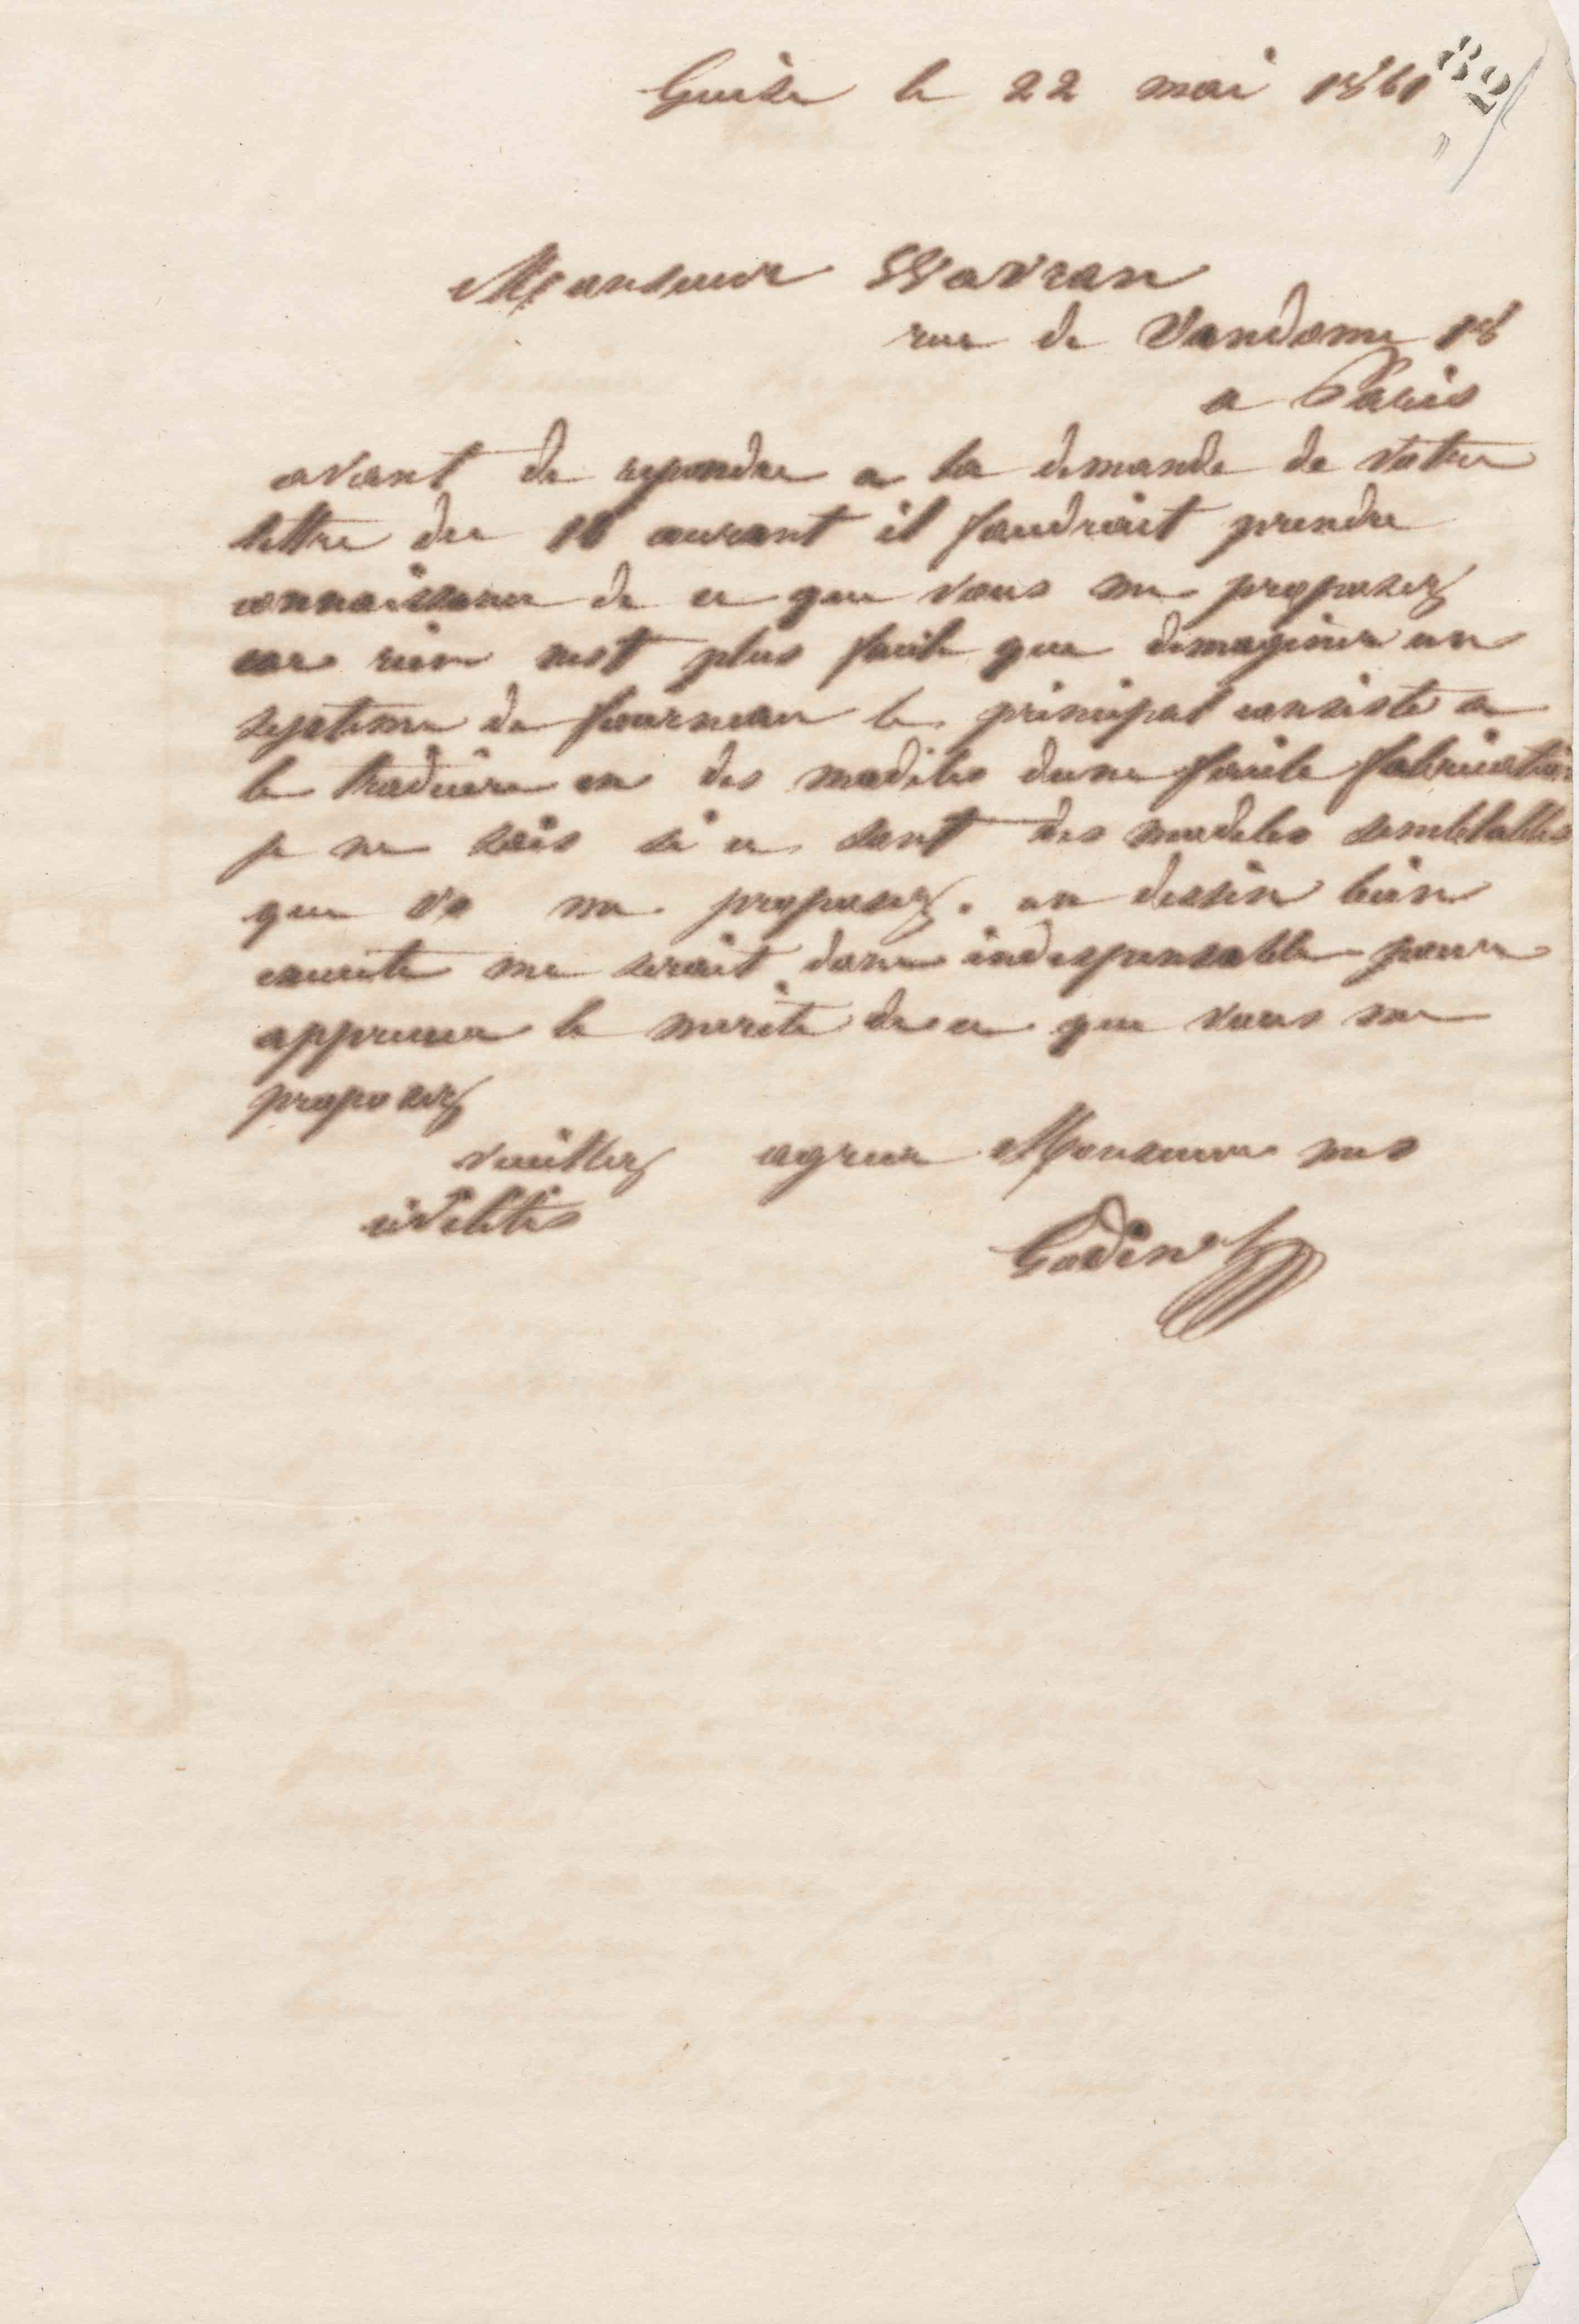 82
Guise le 22 mai 1861
Monsieur Wavran
rue de Vandome 18
a Paris
avant de repondre a la demande de votre
lettre du 16 courant il faudrait prendre
connaissance de ce que vous me proposez
car rien nest plus facile que dimaginer un
systeme de fourneau le principal consiste a
le traduire en des modeles dune facile fabrication
je ne sais si ce sont des modeles semblables
que vs me proposez. un dessin bien
execute me serait donc indispensable pour
apprecier le merite de ce que vous me
proposez
veuillez agreer Monsieur mes
civilités
Godin